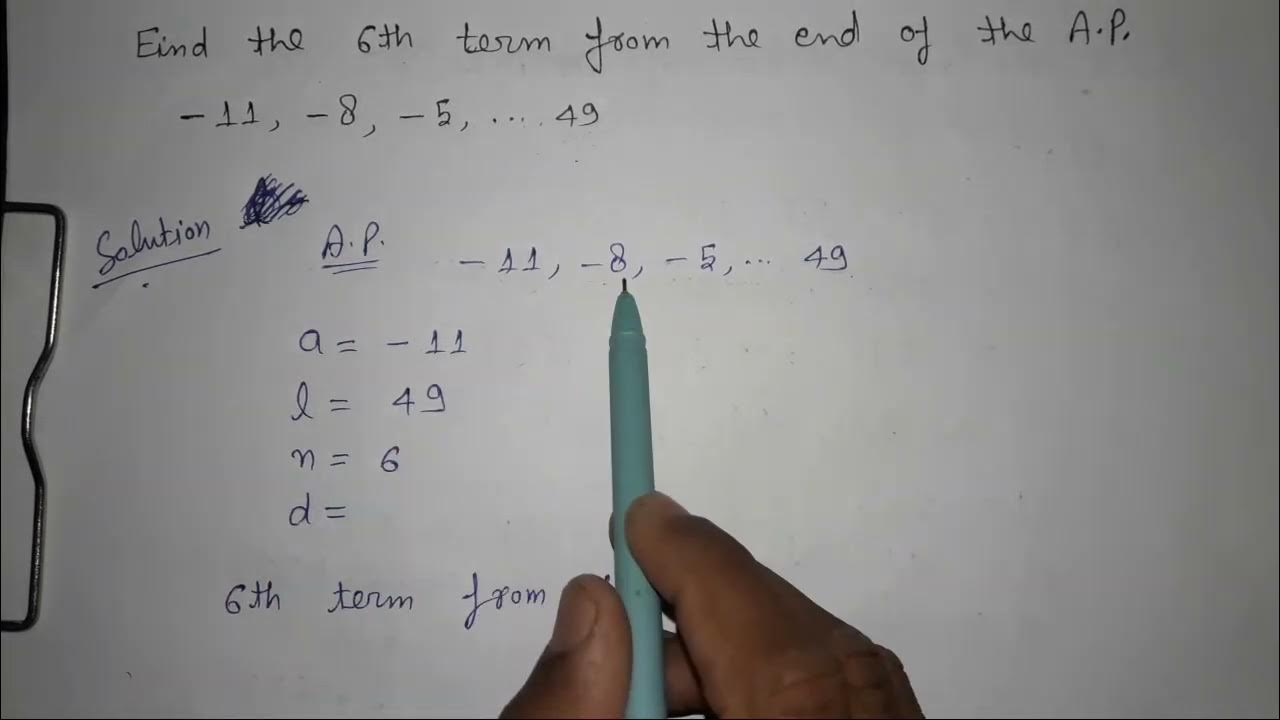 Find the 6th term from the end of the A.P.
-11, -8, -5, .... 49
Solution
A.P. -11, -8, -5, ... 49
a = -11
l = 49
n = 6
d =
6th term from